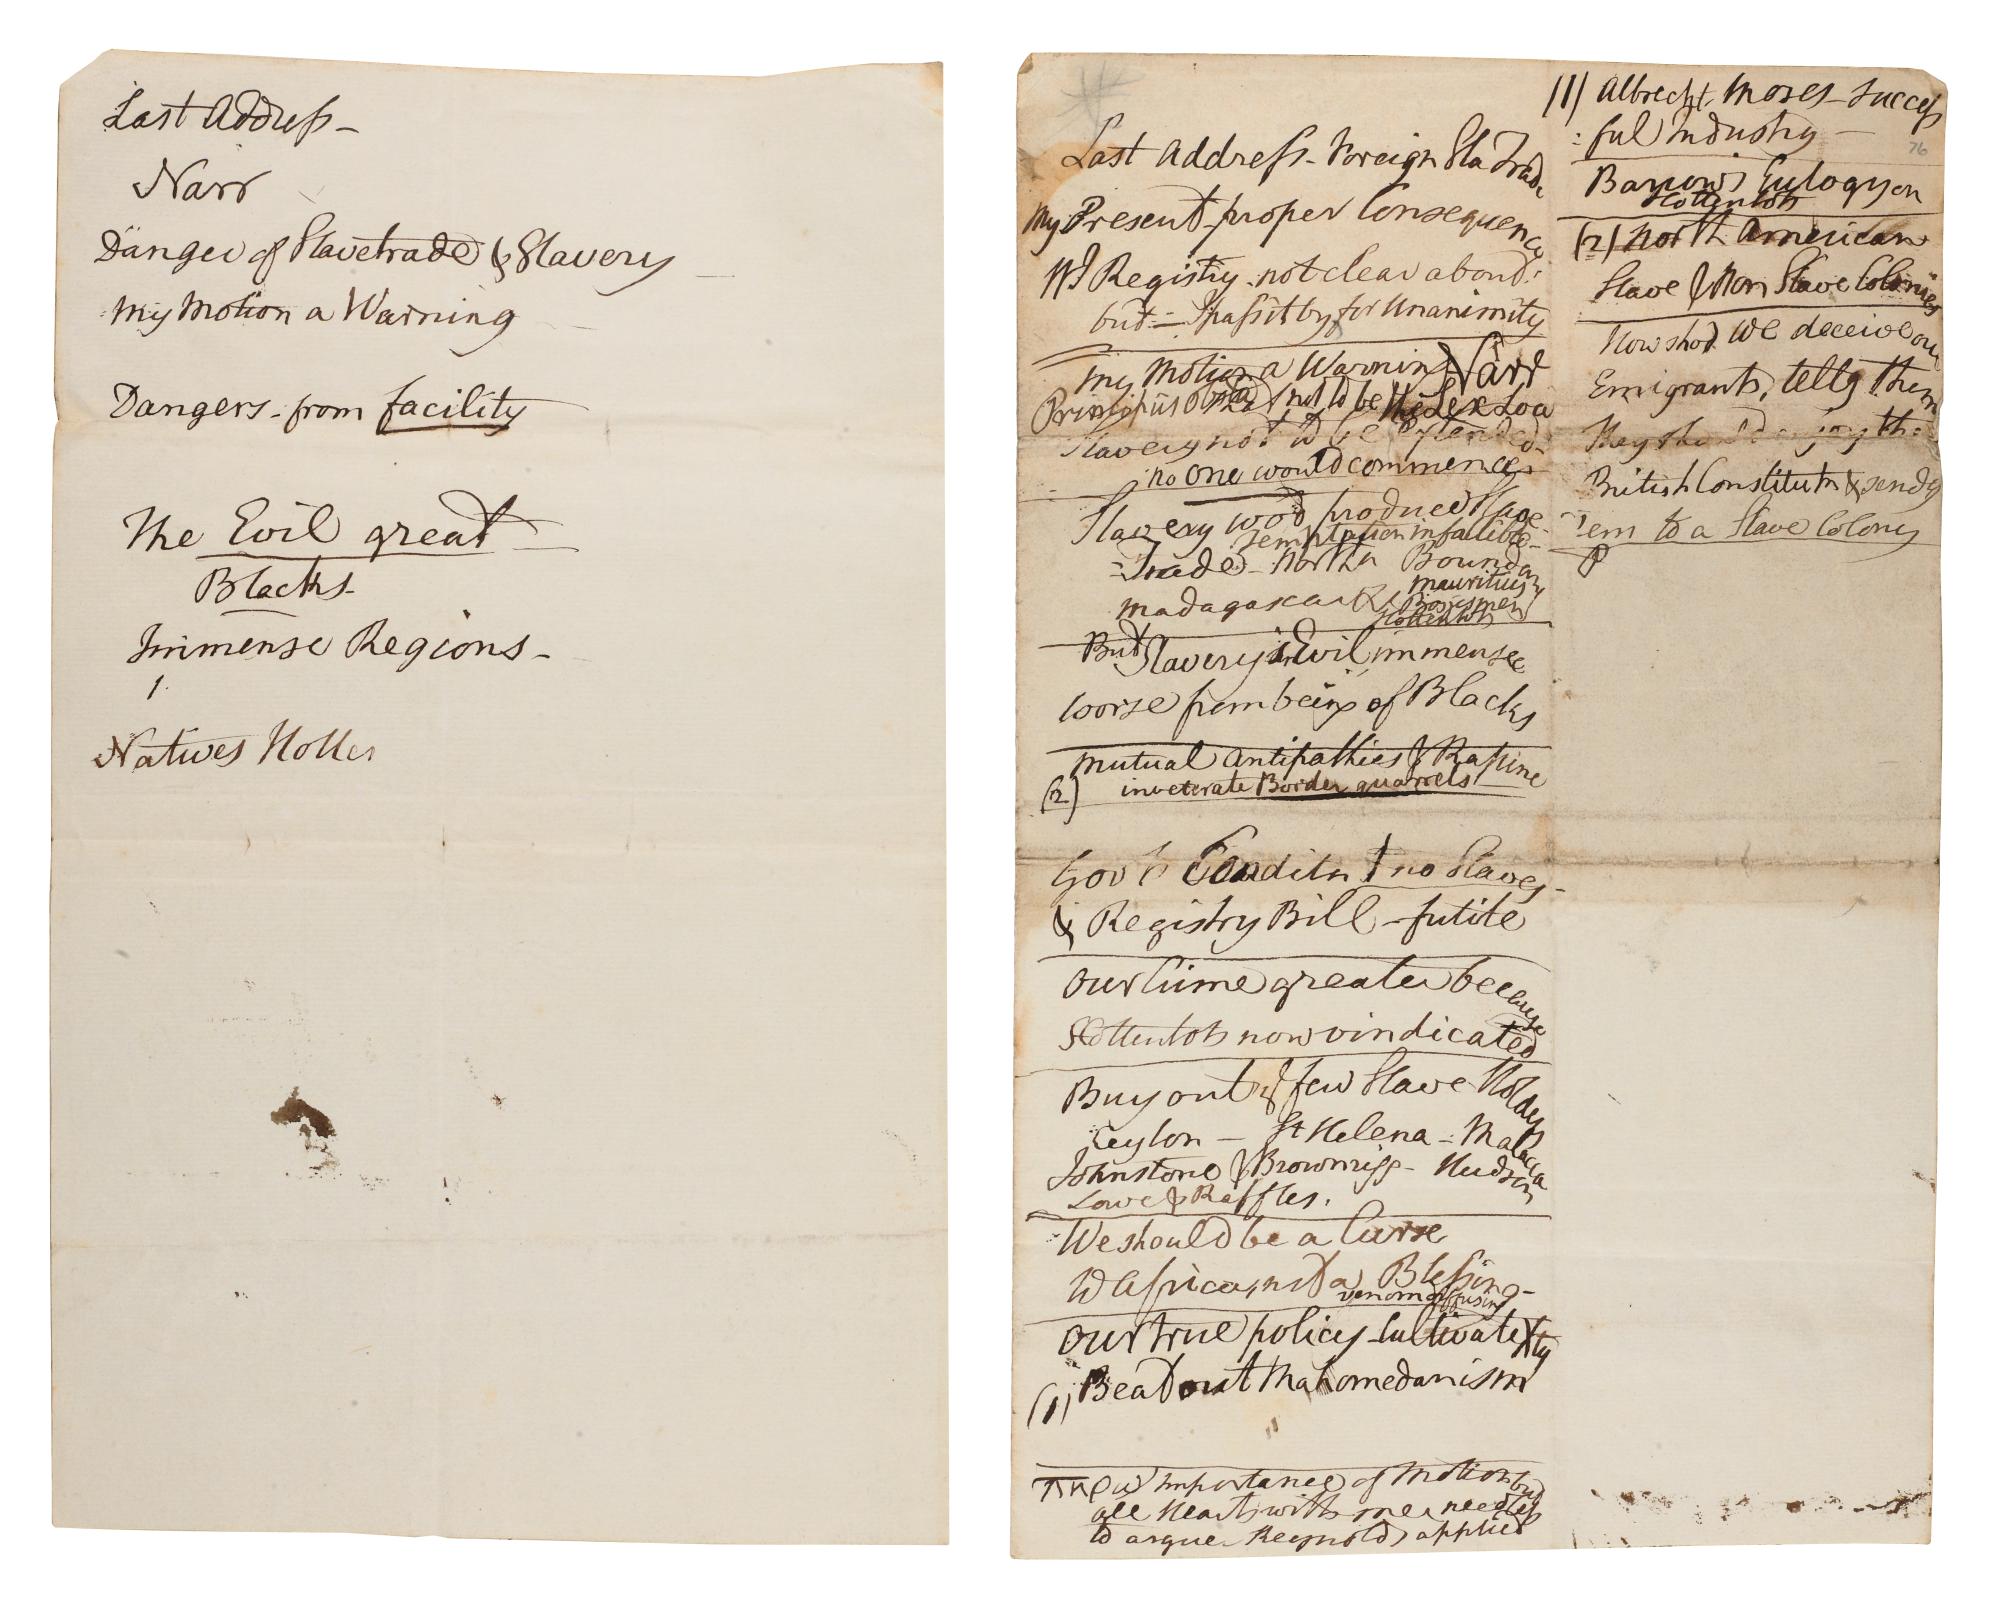 Last Address –
Narr
Danger of Slavetrade & Slavery
My Motion a Warning
Dangers – from facility
The Evil great –
Blacks –
Immense Regions –
1
Natives Hotten
Last Address – Foreign Sla Trade
My Present – proper Consequence
Registry – not clear abond:
but – I pass it by for Unanimity
My Motion a Warning Narr
Principiis obsta not to be the Lex Loci
Slavery not to be extended –
no One would commence
Slavery wod produce Slave
Temptation infallible –
Trade – North Boundary
Mauritius
Madagascar & Bosjesmen
Hottentots
But Slavery an Evil immense
worse from being of Blacks
Mutual Antipathies & Rapine
(2) inveterate Border quarrels
Govts Conditn no Slaves –
& Registry Bill – futile
Our Crime greater because
Hottentots now vindicated
Buy out few Slave Holders
Ceylon – St Helena – Malacca
Johnstone & Brownrigg – Hudson
Lowe & Raffles.
We should be a Curse
to Africa, not a Blessing –
venom diffusing
Our true policy – Cultivate Xty
(1) Beat out Mahomedanism
Importance of Motion but
all Hearts with me needless
to argue – Reynolds applied
(1) Albrecht, Moses – success
:ful Industry –
76
Barrow's Eulogy on
Hottentots
(2) North American
Slave & Non Slave Colonies
How shod We deceive our
Emigrants, tellg them
they should enjoy the
British Constitutn & sendg
'em to a Slave Colony